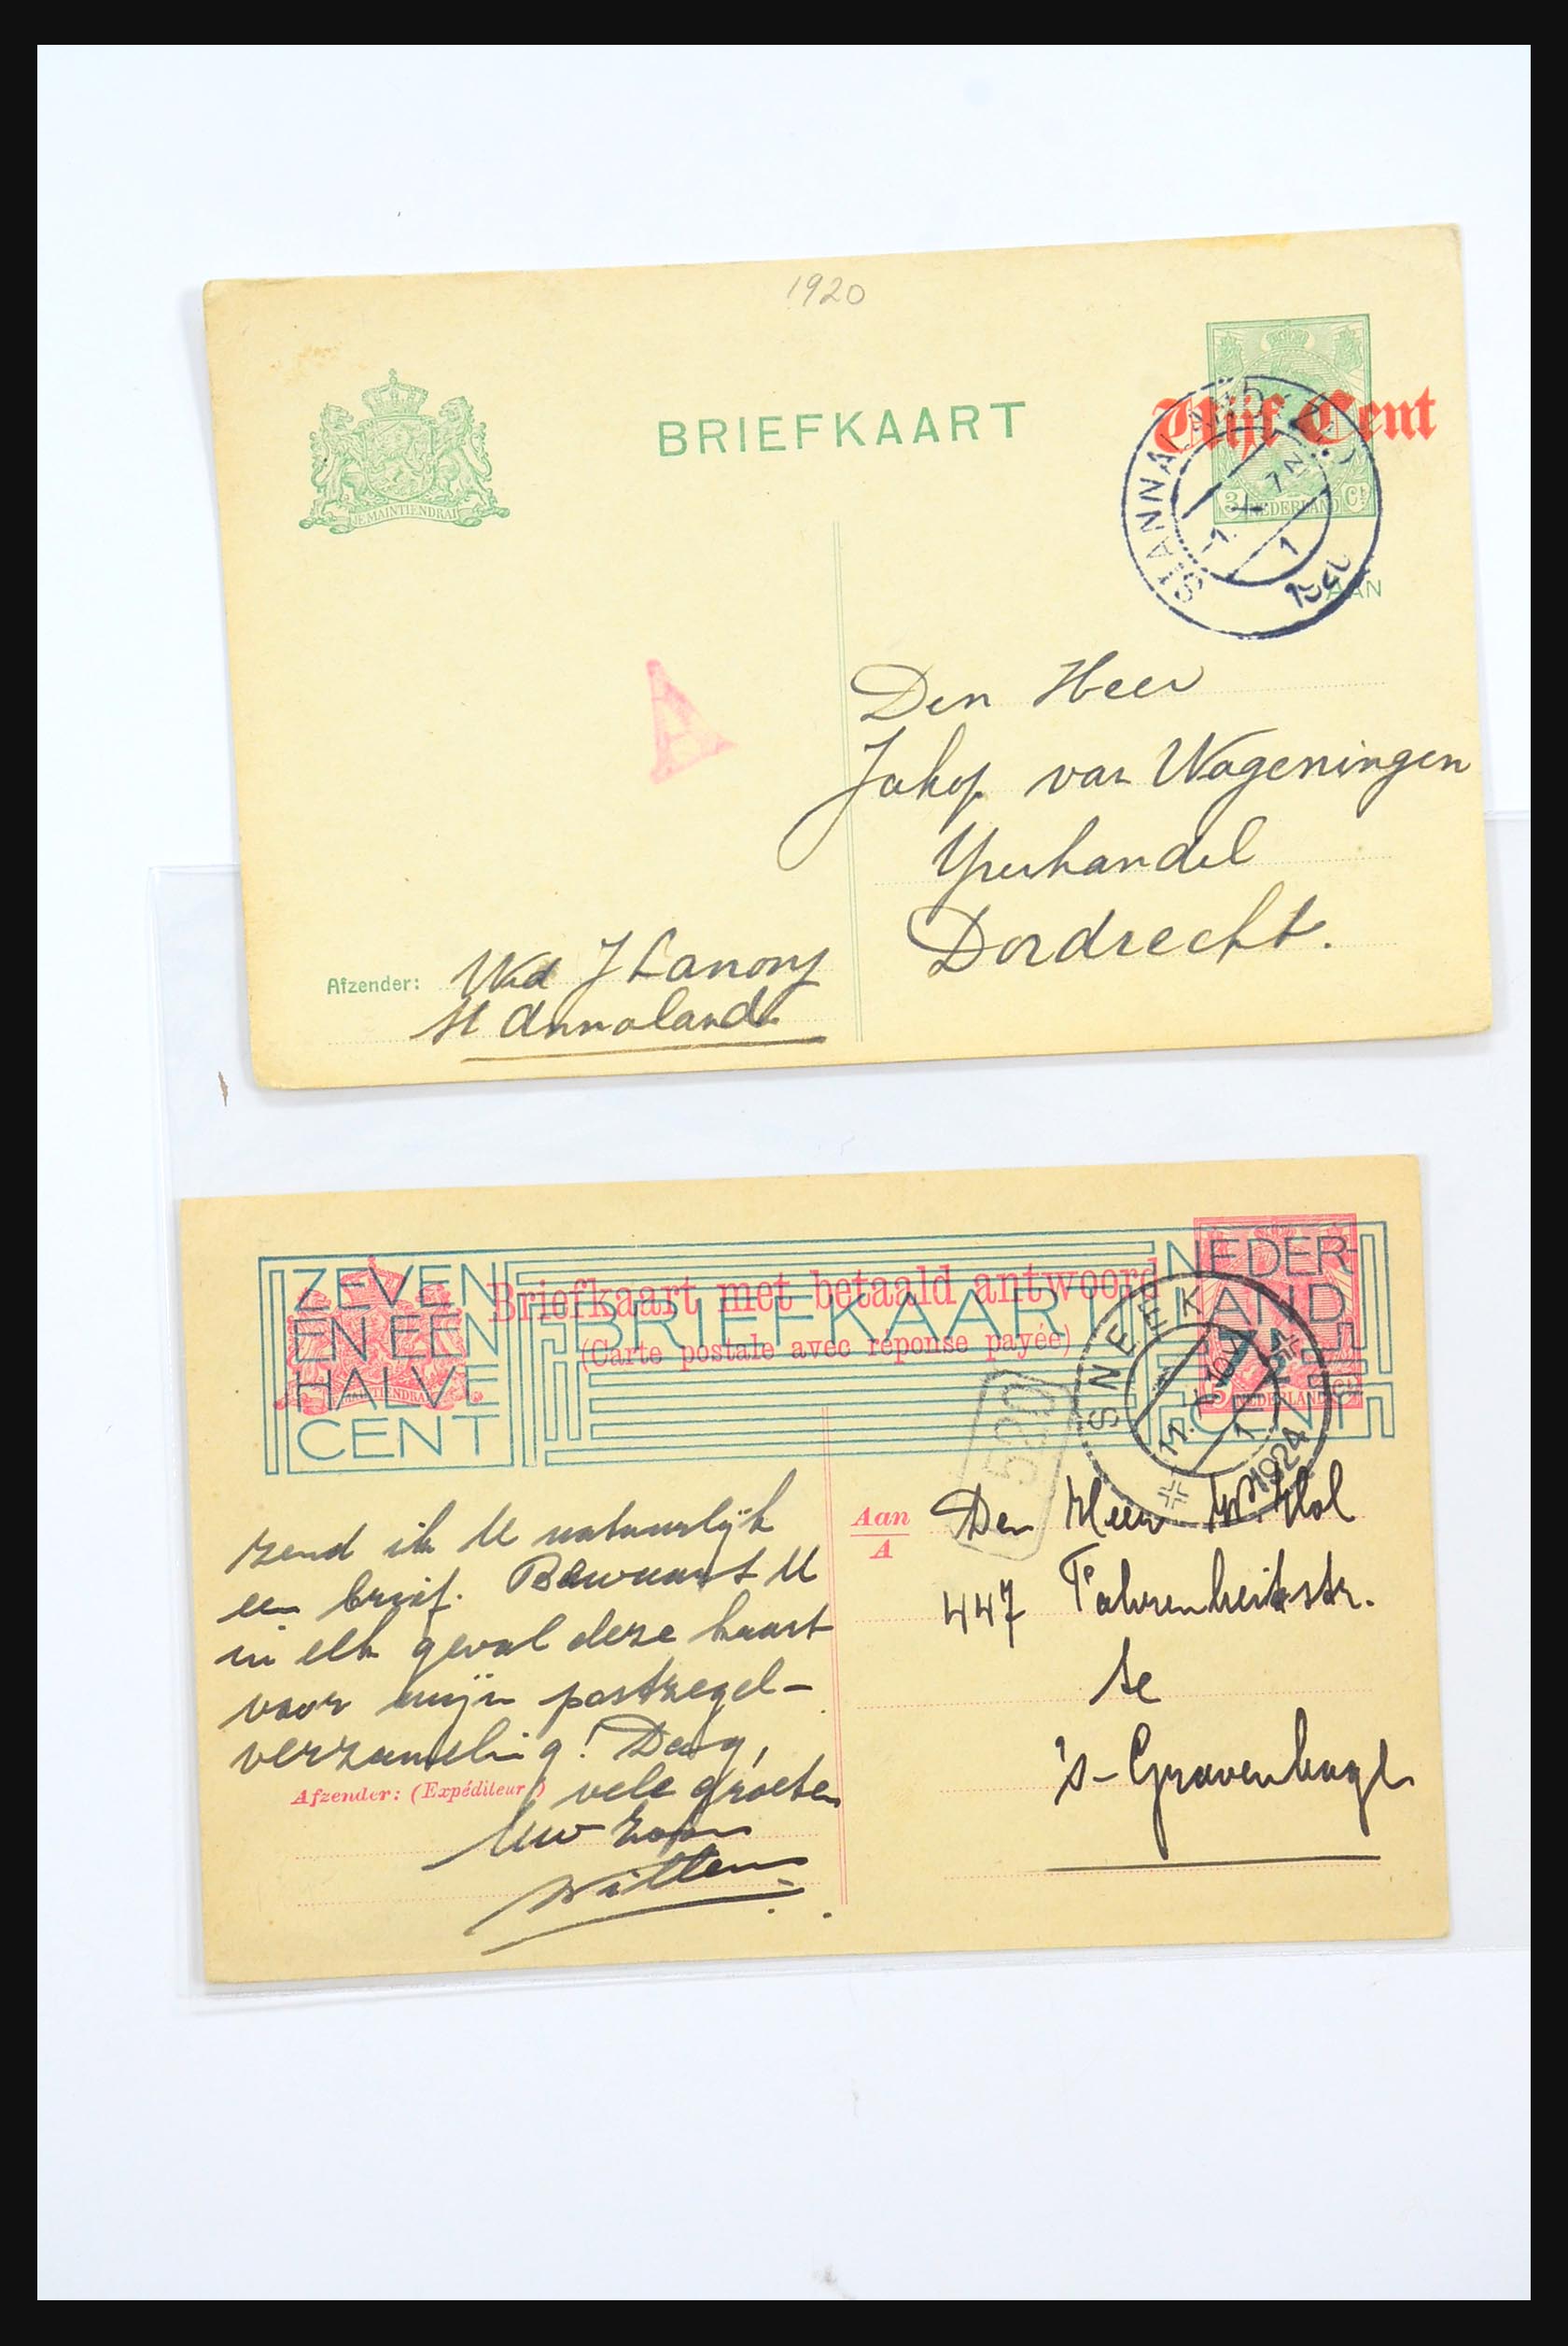 1920
BRIEFKAART
Vijf Cent
JE MAINTIENDRAI
3 NEDERLAND Ct
1
AAN
Den Heer
Jakop van Wageningen
Dordrecht.
Afzender: Wed J
St Annaland
ZEVEN
EN EEN
HALVE
CENT
Briefkaart met betaald antwoord
BRIEFKAART
(Carte postale avec réponse payée)
NEDER-
LAND
7½
CENT
5 NEDERLAND Ct
MAINTIENDRAI
SNEEK
1
1924
520
zend ik U natuurlijk
een brief. Bewaart U
in elk geval deze kaart
voor mijn postzegel-
verzameling! Daag,
vele groeten
Afzender: (Expéditeur)
Uw zoon
Willem
Aan
A
Den Heer W. Hol
447 Fahrenheitstr.
te
's-Gravenhage